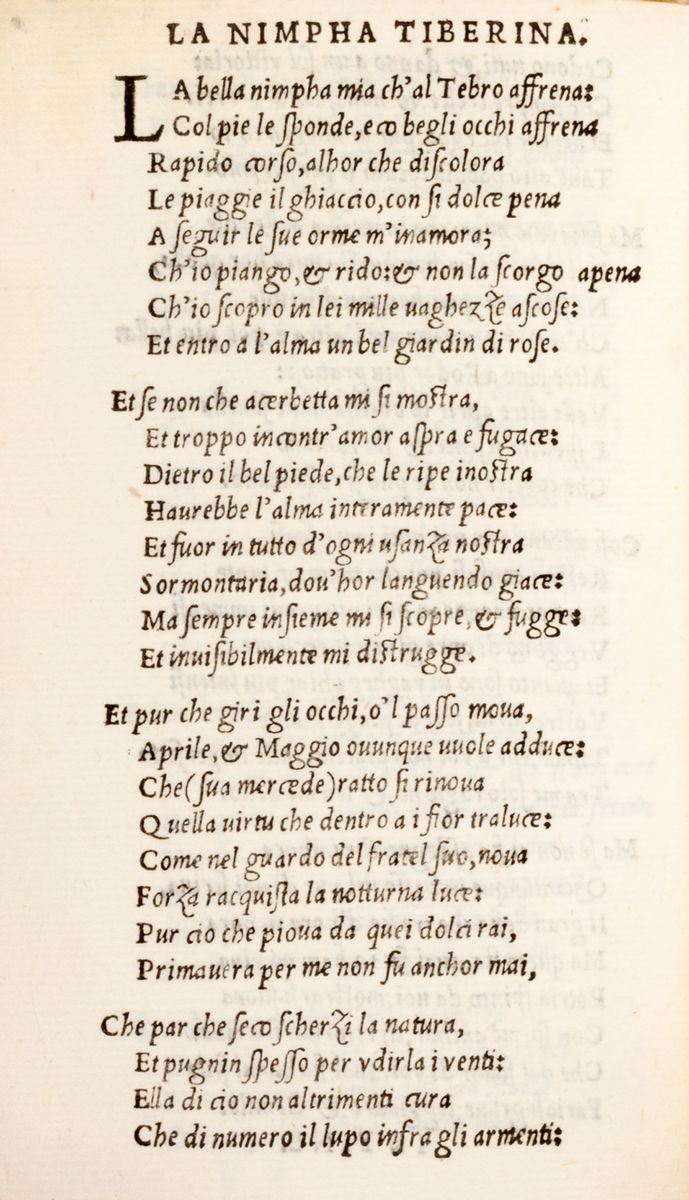 LA NIMPHA TIBERINA.
LA bella nimpha mia ch'al Tebro affrena:
Col pie le ſponde, e co begli occhi affrena
Rapido corſo, alhor che diſcolora
Le piaggie il ghiaccio, con ſi dolce pena
A ſeguir le ſue orme m'inamora;
Ch'io piango, & rido: & non la ſcorgo apena
Ch'io ſcopro in lei mille uaghezze aſcoſe:
Et entro a l'alma un bel giardin di roſe.
Et ſe non che acerbetta mi ſi moſtra,
Et troppo incontr'amor aſpra e fugace:
Dietro il bel piede, che le ripe inoſtra
Haurebbe l'alma interamente pace:
Et fuor in tutto d'ogni uſanza noſtra
Sormontaria, dou'hor languendo giace:
Ma ſempre inſieme mi ſi ſcopre, & fugge:
Et inuiſibilmente mi diſtrugge.
Et pur che giri gli occhi, o'l paſſo moua,
Aprile, & Maggio ouunque uuole adduce:
Che (ſua mercede) ratto ſi rinoua
Quella uirtu che dentro a i fior traluce:
Come nel guardo del fratel ſuo, noua
Forza racquiſta la notturna luce:
Pur cio che pioua da quei dolci rai,
Primauera per me non fu anchor mai,
Che par che ſeco ſcherzi la natura,
Et pugnin ſpeſſo per vdirla i venti:
Ella di cio non altrimenti cura
Che di numero il lupo infra gli armenti: